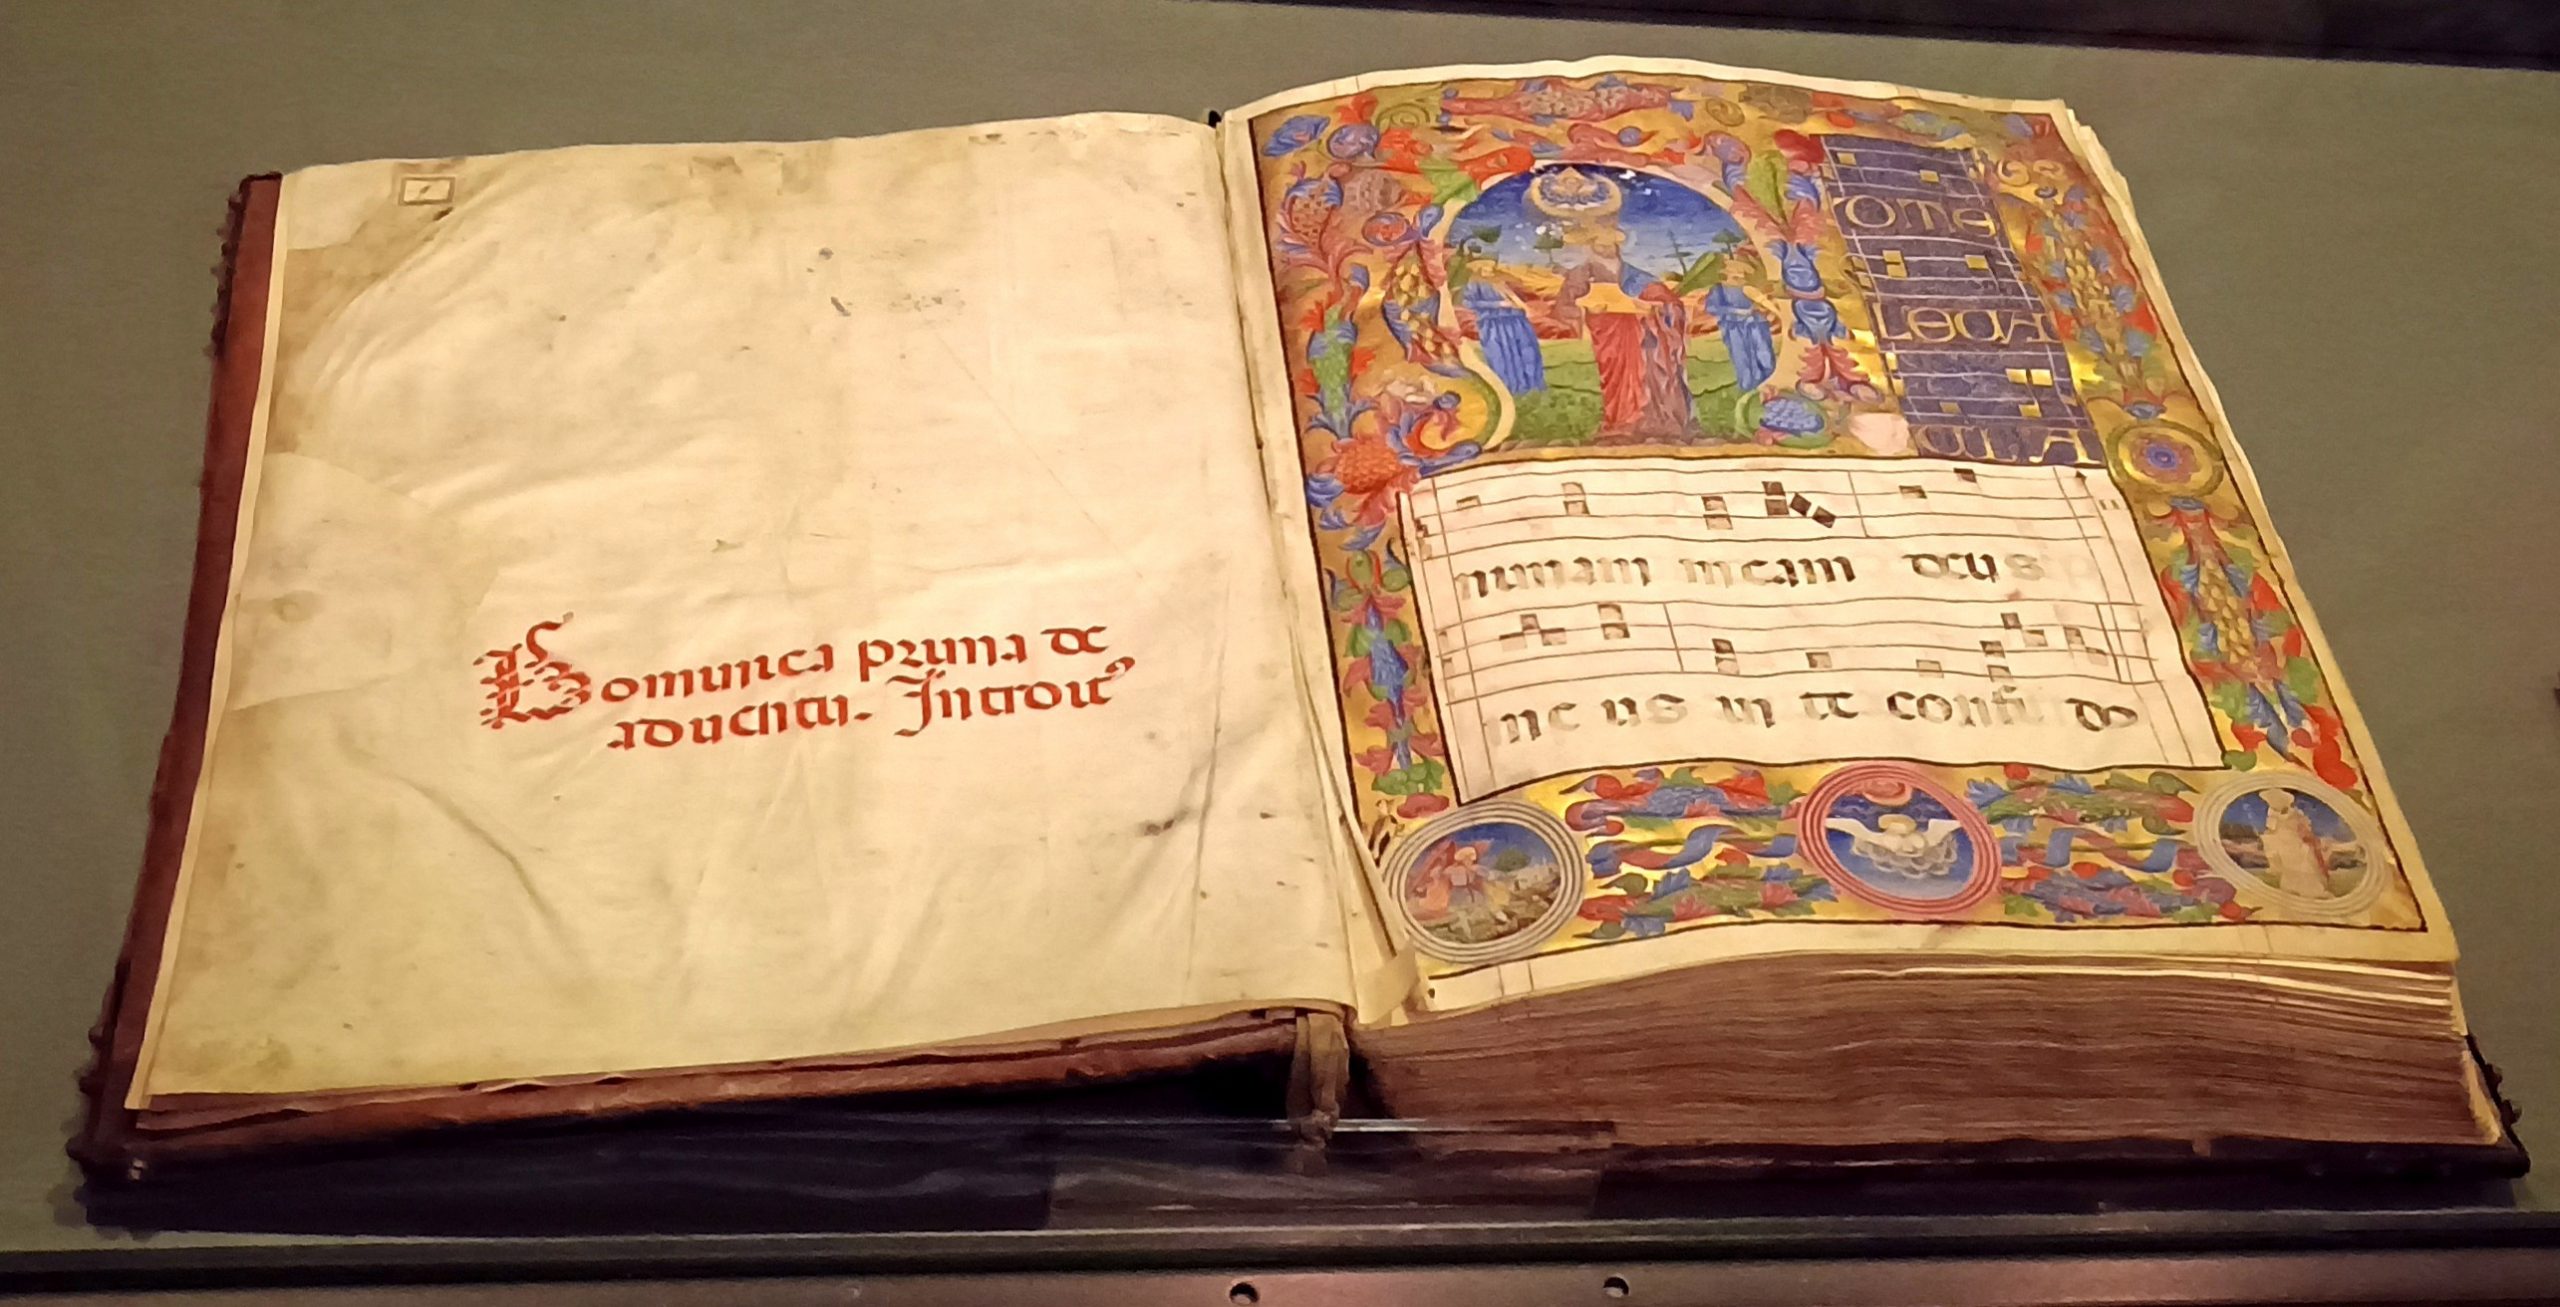 Dominica prima de
aduentu. Introitꝰ
DTE
LEUA
UI A
nimam meam deus
me us in te confi do